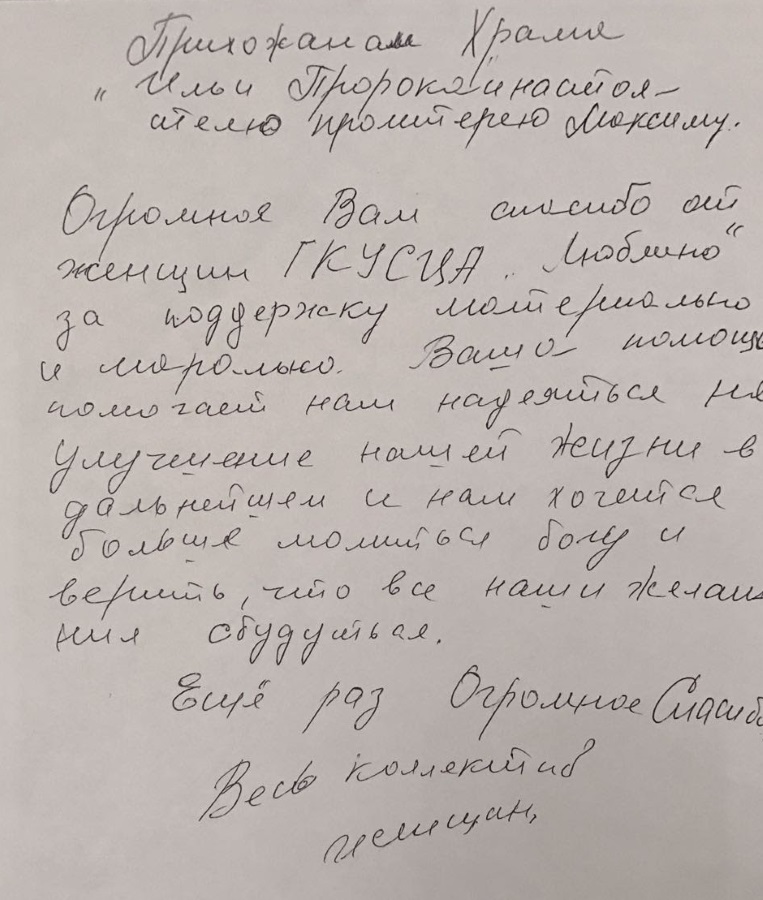 Прихожанам Храма
"Ильи Пророка" и настоя-
ателю протиерею Максиму.
Огромное Вам спасибо от
женщин ГКУСЦА "Люблино"
за поддержку материально
и морально. Ваша помощь
помогает нам надеяться на
улучшение нашей жизни в
дальнейшем и нам хочется
больше молиться богу и
верить, что все наши желан
ния сбудуться.
Ещё раз Огромное Спасибо
Весь коллектив